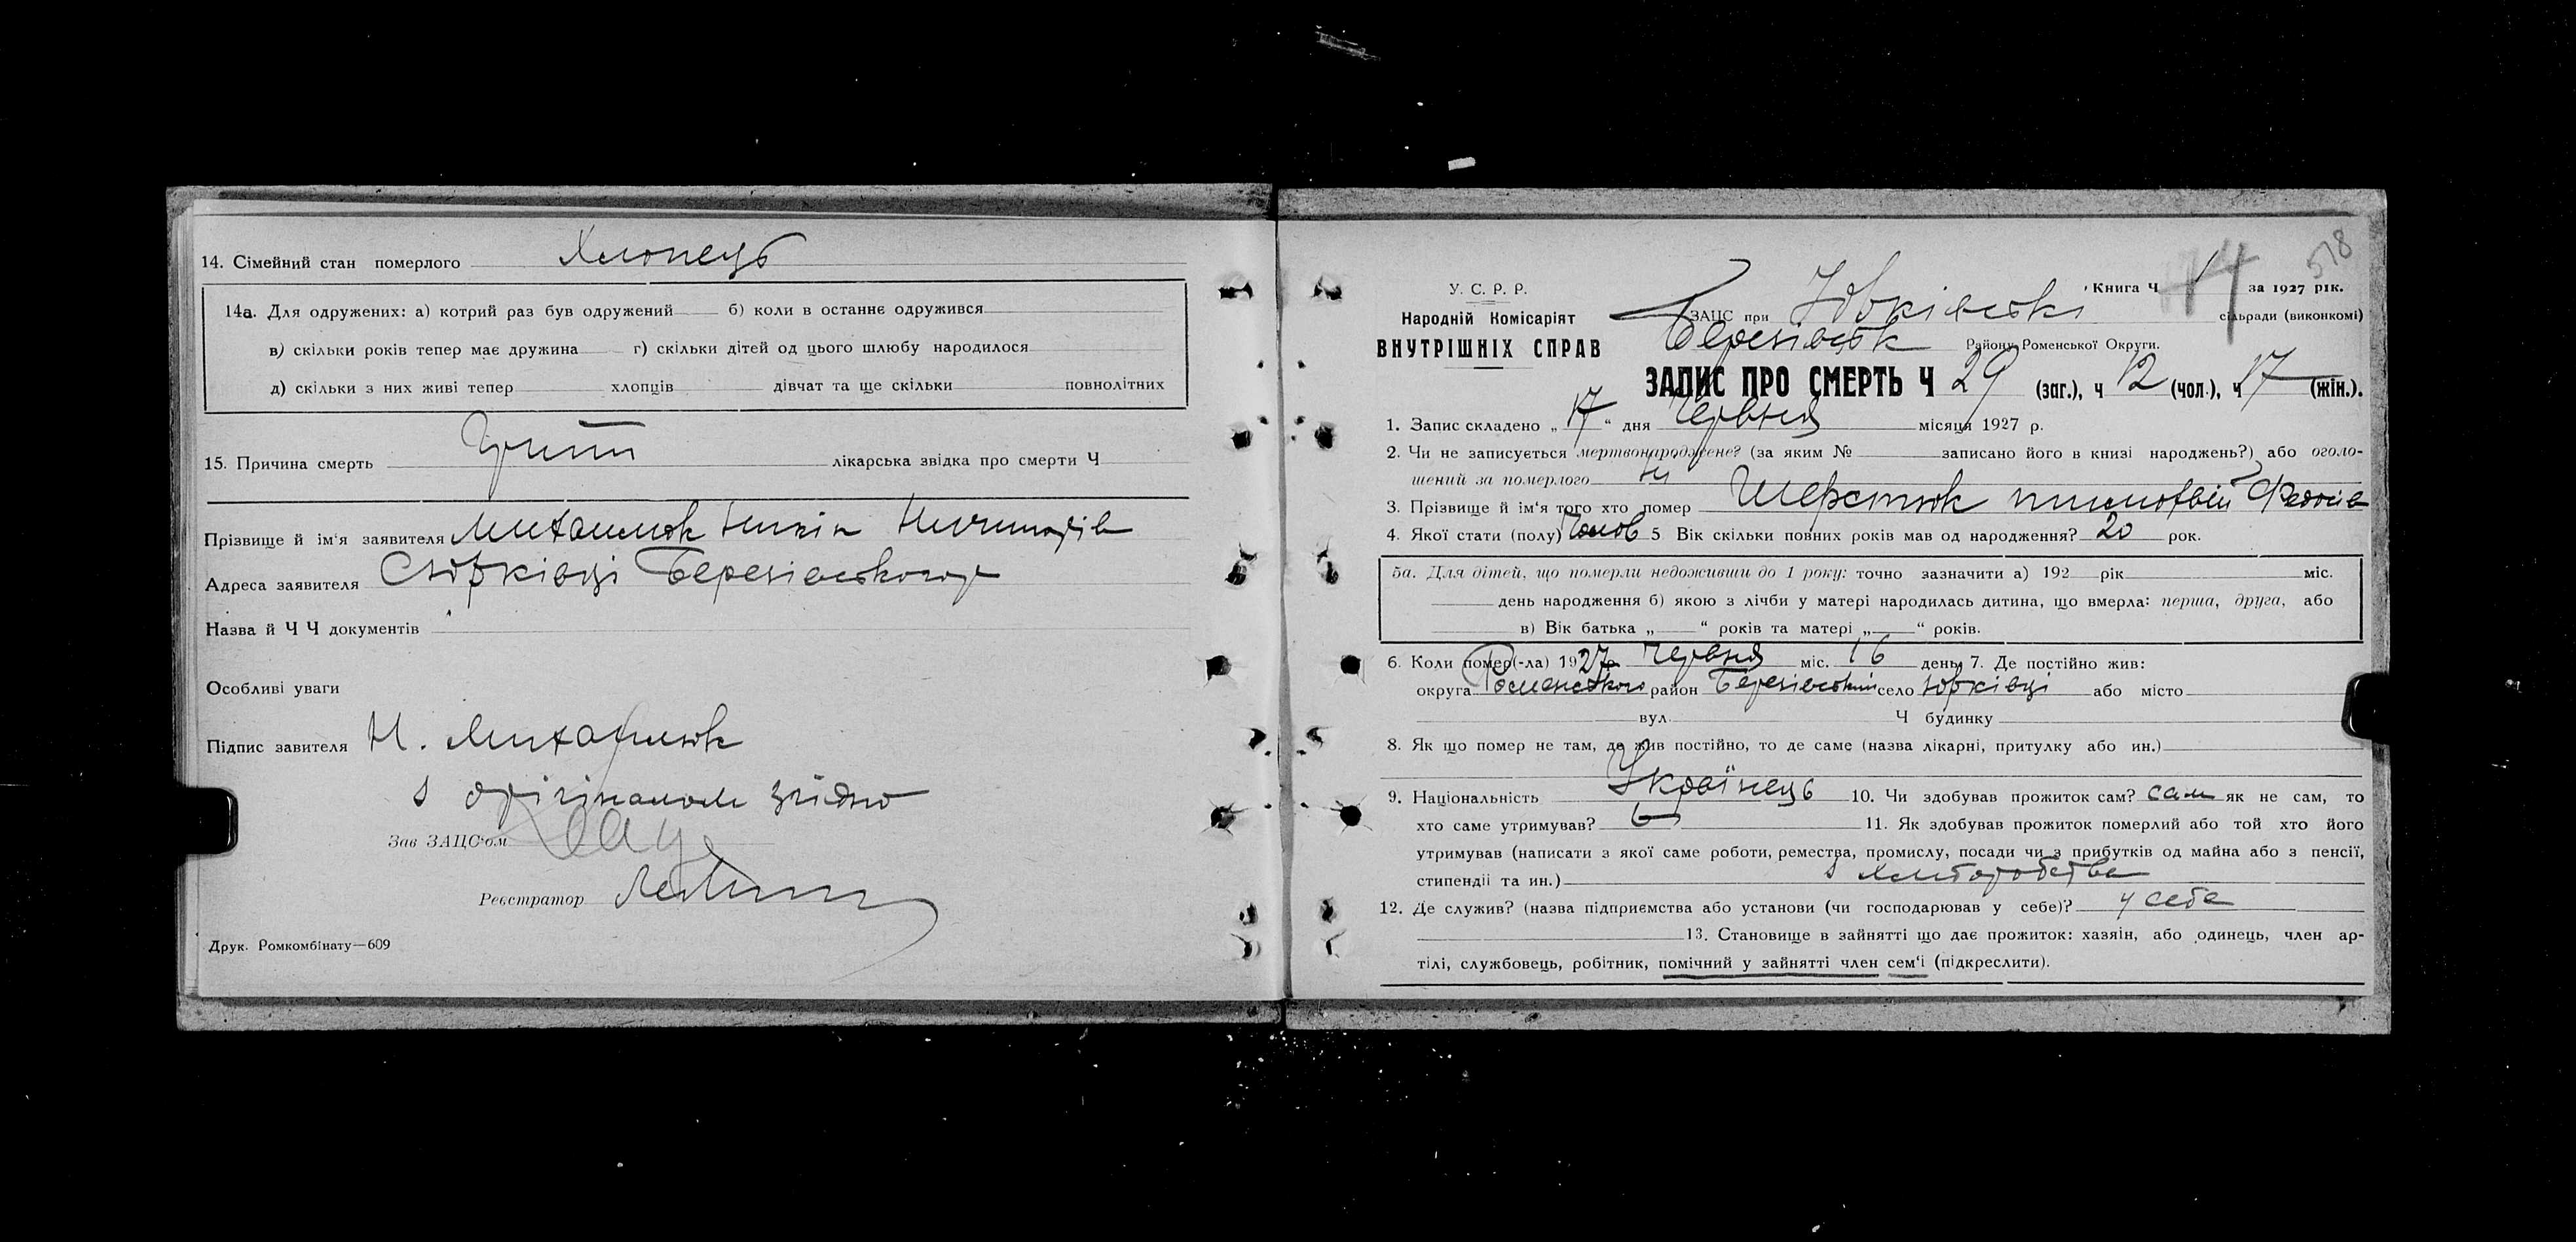 14. Сімейний стан померлого Хлопець
14а. Для одружених: а) котрий раз був одружений б) коли в останнє одружився
в) скільки років тепер має дружина г) скільки дітей од цього шлюбу народилося
д) скільки з них живі тепер хлопців дівчат та ще скільки повнолітних
15. Причина смерть Грипп лікарська звідка про смерти Ч
Прізвище й ім'я заявителя Михайлюк
Адреса заявителя С Юрківці Березівського р
Назва й Ч Ч документів
Особливі уваги
Підпис завителя Н. Михайлюк
з орігіналом згідно
Зав ЗАЦС'ом
Реєстратор
Друк. Ромкомбінату—609
518
У. С. Р. Р.
Книга Ч 14 за 1927 рік.
Народній Комісаріят
ЗАЦС при Юрківські сільради (виконкомі)
ВНУТРІШНІХ СПРАВ
Березівськ Району Роменської Округи.
ЗАПИС ПРО СМЕРТЬ Ч 29 (заг.), ч 12 (чол.), ч 17 (жін.).
1. Запис складено „ 17 “ дня Червня місяця 1927 р.
2. Чи не записується мертвонароджене? (за яким № записано його в книзі народжень?) або оголо-
шений за померлого ні
3. Прізвище й ім'я того хто помер Шерстюк Тимофвій Федосів
4. Якої стати (полу) Чолов 5 Вік скільки повних років мав од народження? 20 рок.
5а. Для дітей, що померли недоживши до 1 року: точно зазначити а) 192 рік міс.
день народження б) якою з лічби у матері народилась дитина, що вмерла: перша, друга, або
в) Вік батька „ “ років та матері „ “ років.
6. Коли помер(-ла) 1927р Червня міс. 16 день 7. Де постійно жив:
округа Роменського район Березівський село Юрківці або місто
вул. Ч будинку
8. Як що помер не там, де жив постійно, то де саме (назва лікарні, притулку або ин.)
9. Національність Українець 10. Чи здобував прожиток сам? сам як не сам, то
хто саме утримував? 11. Як здобував прожиток померлий або той хто його
утримував (написати з якої саме роботи, ремества, промислу, посади чи з прибутків од майна або з пенсії,
стипендії та ин.) з хліборобства
12. Де служив? (назва підприємства або установи (чи господарював у себе)? у себе
13. Становище в зайнятті що дає прожиток: хазяін, або одинець, член ар-
тілі, службовець, робітник, помічний у зайнятті член сем'і (підкреслити).